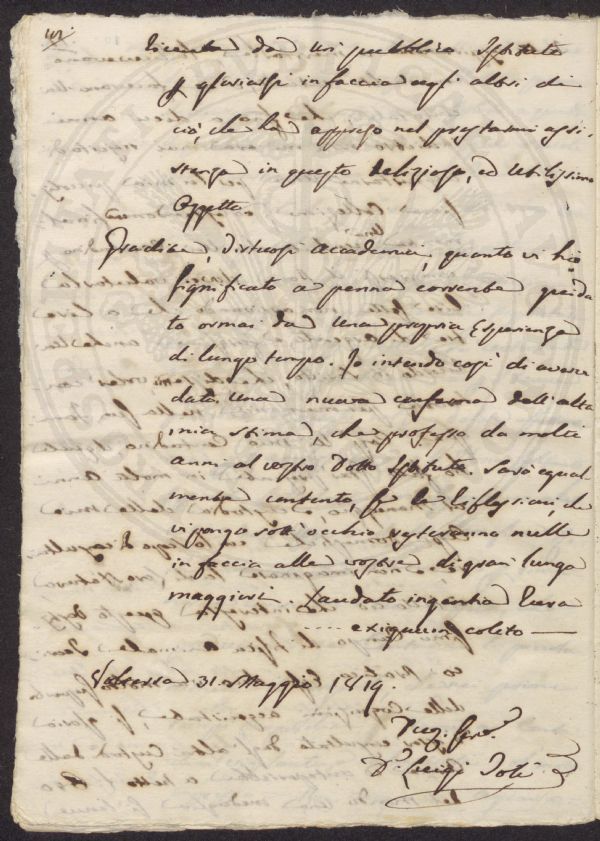 da un pubblico Istituto
p gloriarsi in faccia agl'altri di
ciò, che ha appreso nel prestarmi assi-
stenza in questo delizioso, ed utilissimo
Oggetto
Gradite, Virtuosi Accademici, quanto vi ho
significato a penna corrente guida-
to ormai da una propria Esperienza
di lungo tempo. Io intendo così di avere
data una nuova conferma dell'alta
mia stima, che professo da molti
anni al vostro Dotto Istituto. Sarò equal-
mente contento, se le riflessioni, che
vi pongo sott'occhio resteranno nulle
in faccia alle vostre di gran lunga
maggiori. Laudato ingentia rura
exiguum colito
31 Maggio 1819.
Luigi